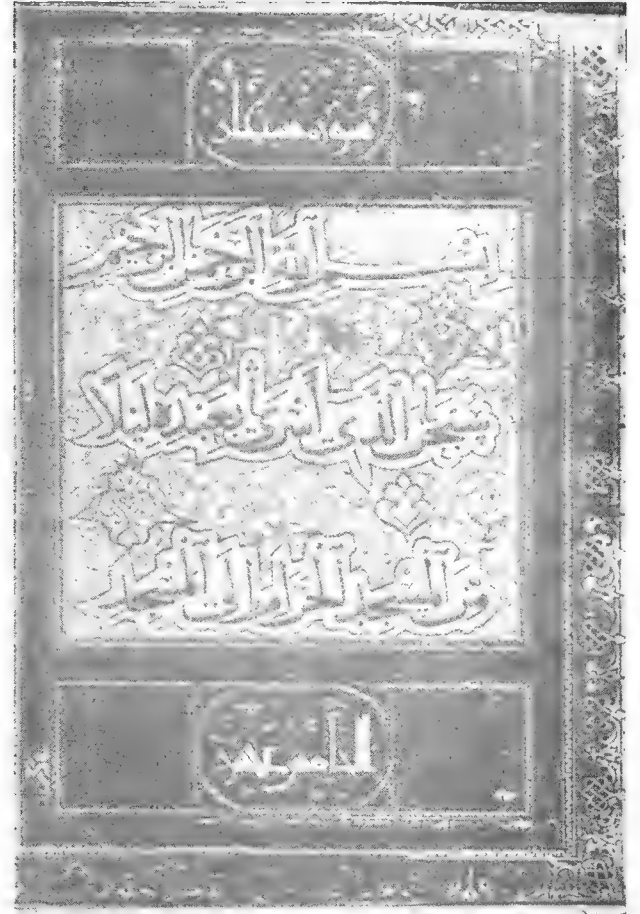 بسم الله الرحمن الرحيم
سبحن الذي اسرى بعبده ليلا
من المسجد الحرام الى المسجد